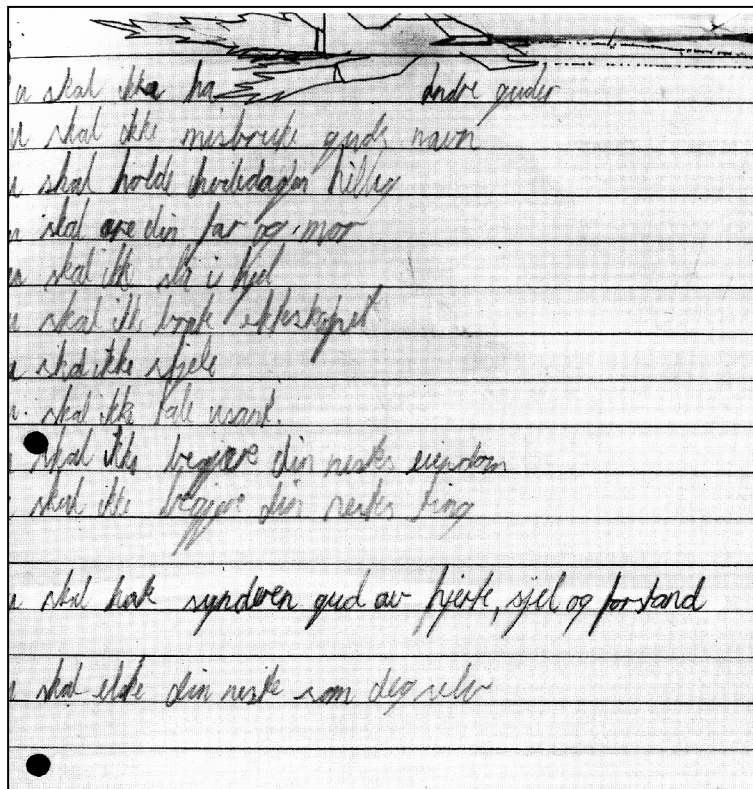 u skal ikke ha andre guder
u skal ikke misbruke guds navn
u skal holde hviledagen hillig
u skal ære din far og mor
u skal ikke slå i hjel
u skal ikk bryte ekteskapet
u skal ikke stjele
u skal ikke tale usant.
skal ikke begjære din nestes eiendom
skal ikke begjære din nestes ting
u skal hate synderen gud av hjerte, sjel og forstand
u skal elske din neste som deg selv